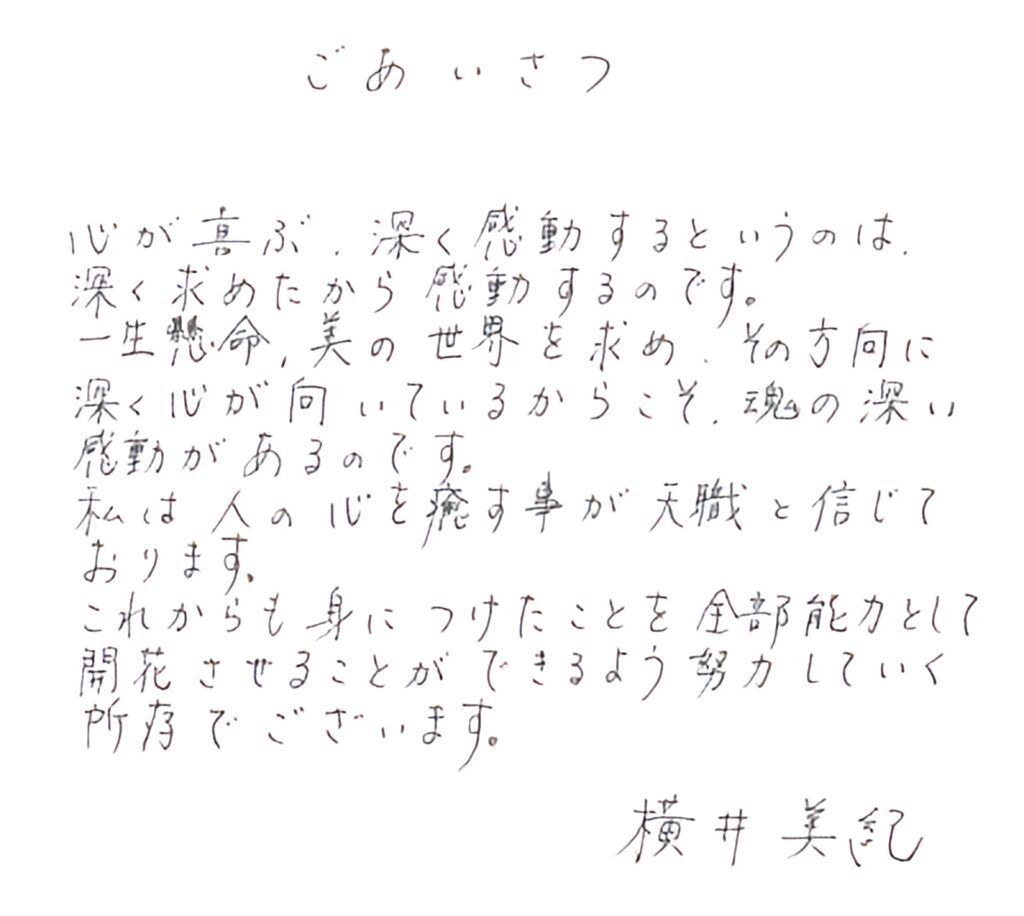 ごあいさつ
心が喜ぶ、深く感動するというのは、
深く求めたから感動するのです。
一生懸命、美の世界を求め、その方向に
深く心が向いているからこそ、魂の深い
感動があるのです。
私は人の心を癒す事が天職と信じて
おります。
これからも身につけたことを全部能力として
開花させることができるよう努力していく
所存でございます。
横井美紀